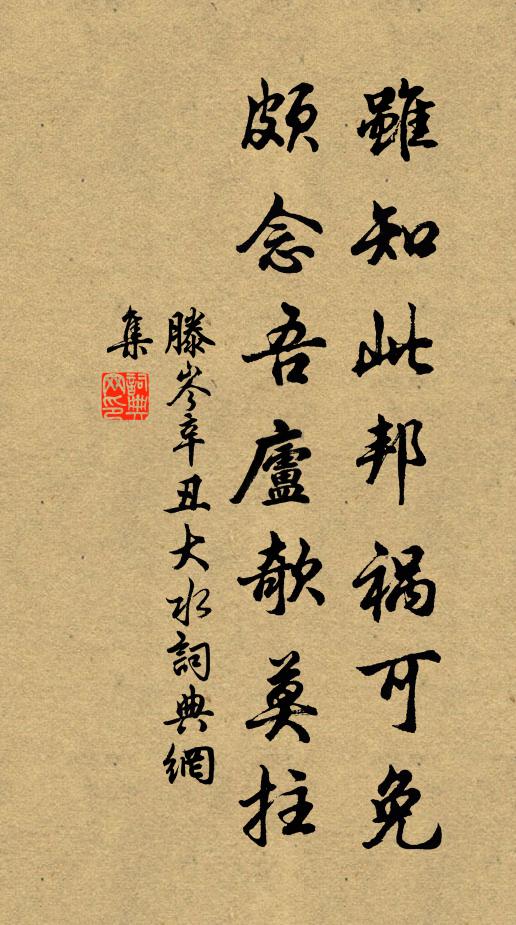 雖知此邦祸可免
頗念吾廬欹莫拄
滕岑辛丑大水詞典網
集
詞典網印